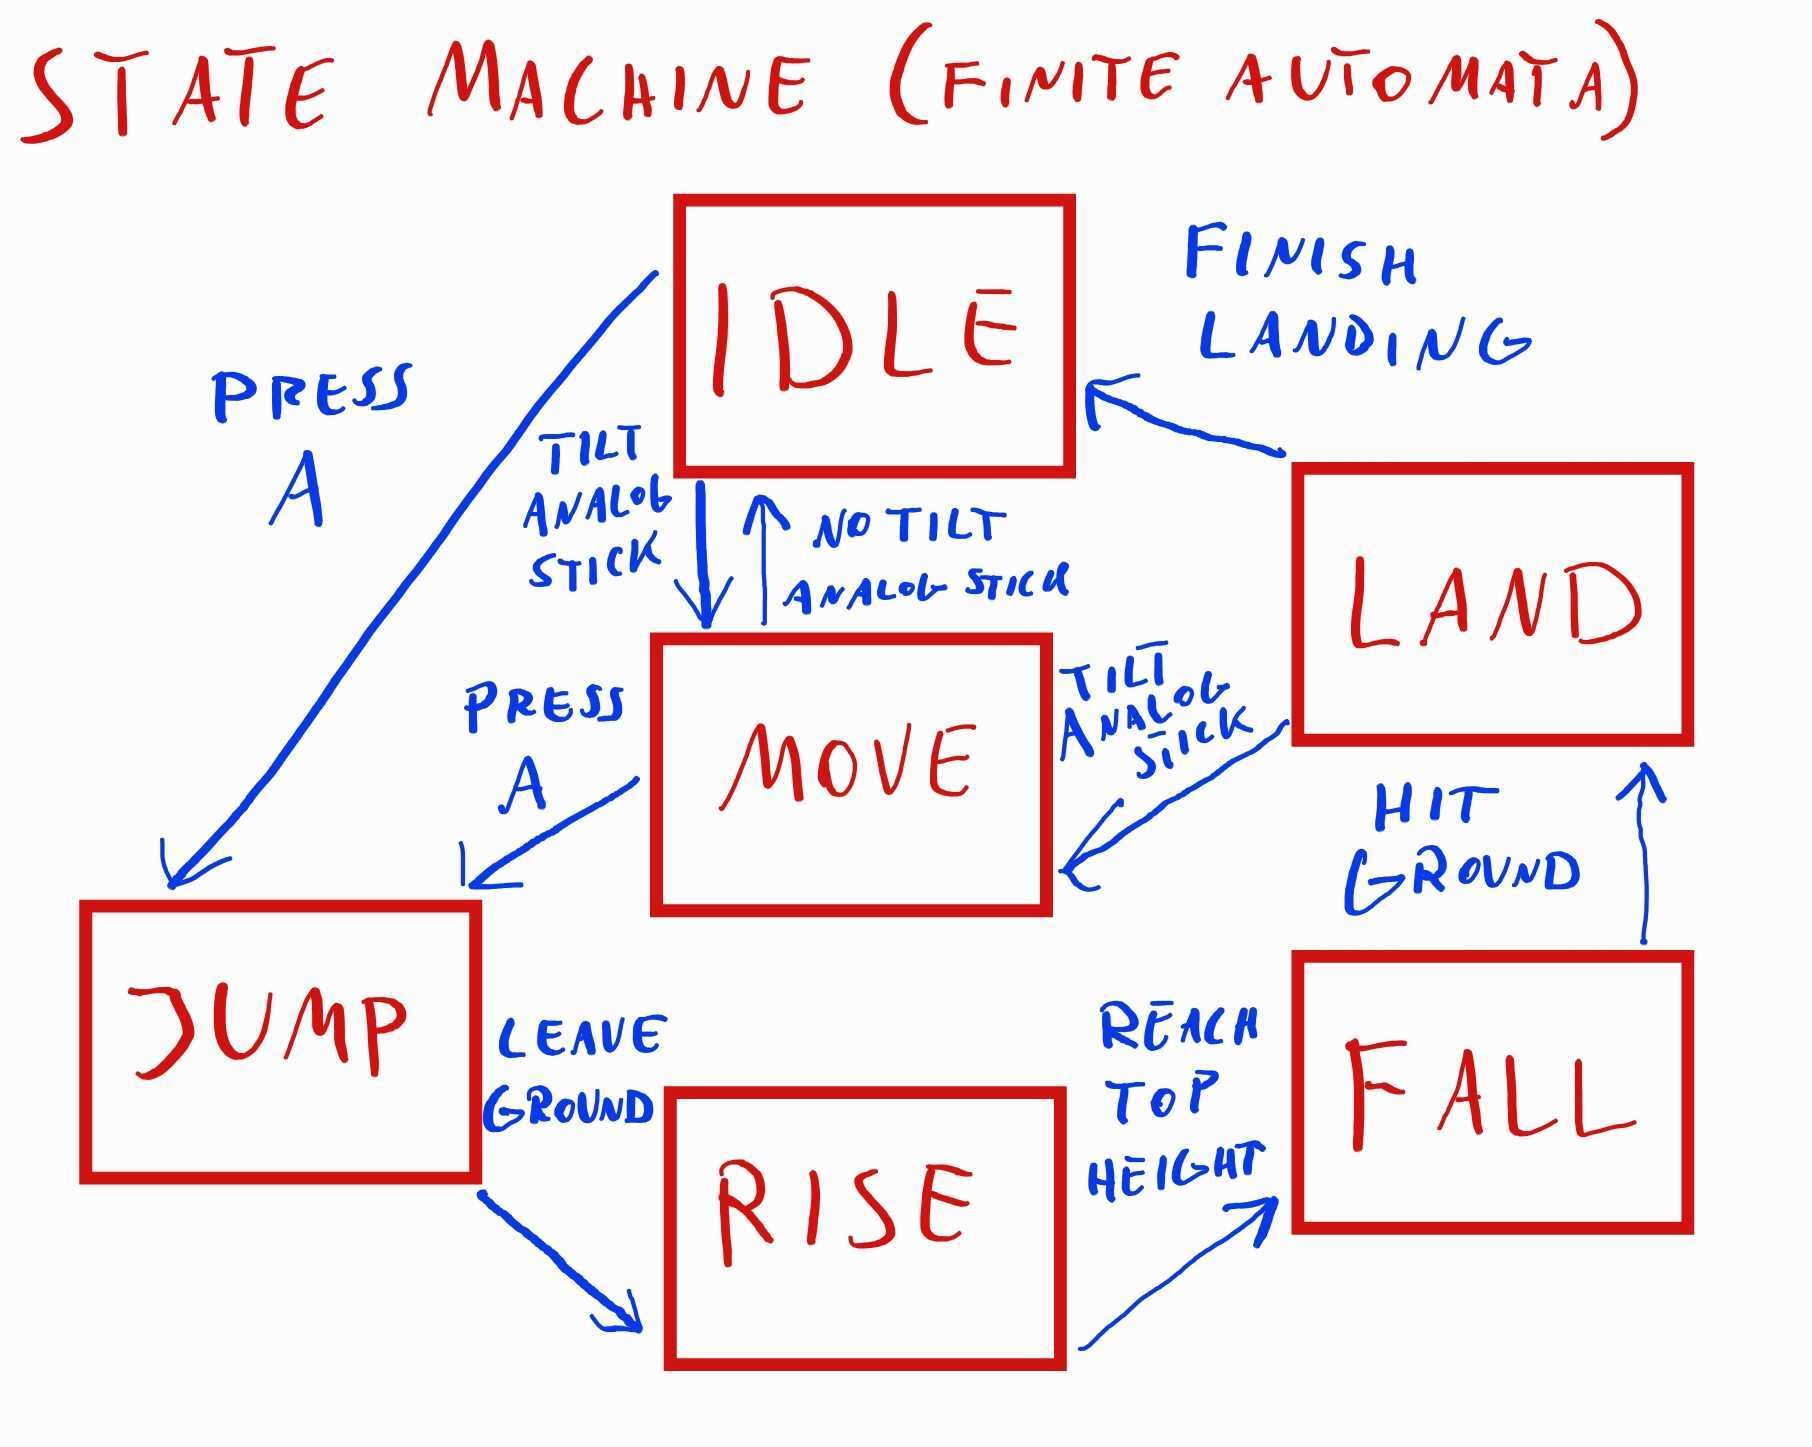 STATE MACHINE (FINITE AUTOMATA)
IDLE
FINISH
LANDING
PRESS
A
TILT
ANALOG
STICK
NO TILT
ANALOG STICK
LAND
PRESS
A
MOVE
TILT
ANALOG
STICK
HIT
GROUND
JUMP
LEAVE
GROUND
RISE
REACH
TOP
HEIGHT
FALL